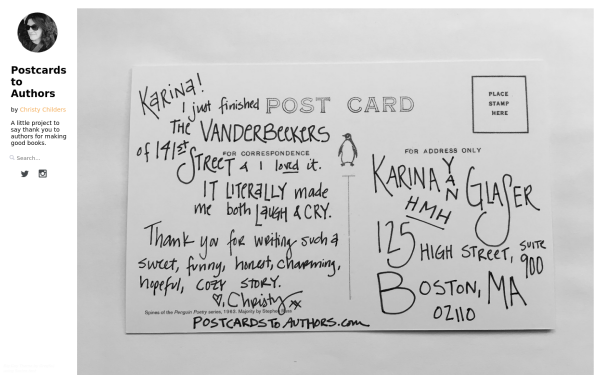 Postcards
to
Authors
by Christy Childers
A little project to
say thank you to
authors for making
good books.
Search...
Karina!
I just finished
POST CARD
THE VANDERBEEKERS
of 141st
STREET & I loved it.
FOR CORRESPONDENCE
IT LITERALLY made
me both LAUGH & CRY.
Thank you for writing such a
sweet, funny, honest, charming,
hopeful, cozy story.
♡, Christy xx
Spines of the Penguin Poetry series, 1992. Majority by Stephen
POSTCARDSTOAUTHORS.com
PLACE
STAMP
HERE
FOR ADDRESS ONLY
KARINA YAN GLASER
HMH
125 HIGH STREET, SUITE
900
BOSTON, MA
02110